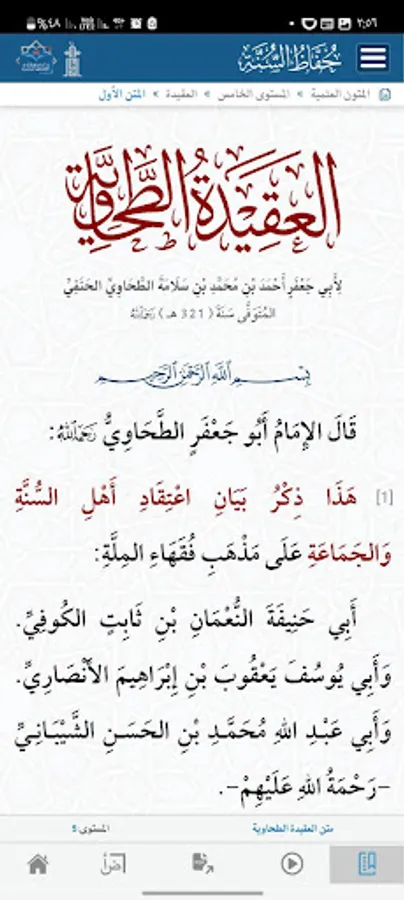 %٤٨ ٢:٥٦
حُفَّاظُ السُّنَّة
المتون العلمية » المستوى الخامس » العقيدة » المتن الأول
العَقِيدَةُ الطَّحَاوِيَّة
لِأَبِي جَعْفَرٍ أَحْمَدَ بْنِ مُحَمَّدِ بْنِ سَلَامَةَ الطَّحَاوِيِّ الحَنَفِيِّ
المُتَوَفَّى سَنَةَ (321 هـ) رَحِمَهُ اللهُ
بِسْمِ اللهِ الرَّحْمَنِ الرَّحِيمِ
قَالَ الإِمَامُ أَبُو جَعْفَرٍ الطَّحَاوِيُّ رَحِمَهُ اللهُ:
[1] هَذَا ذِكْرُ بَيَانِ اعْتِقَادِ أَهْلِ السُّنَّةِ
وَالجَمَاعَةِ عَلَى مَذْهَبِ فُقَهَاءِ المِلَّةِ:
أَبِي حَنِيفَةَ النُّعْمَانِ بْنِ ثَابِتٍ الكُوفِيِّ.
وَأَبِي يُوسُفَ يَعْقُوبَ بْنِ إِبْرَاهِيمَ الأَنْصَارِيِّ.
وَأَبِي عَبْدِ اللهِ مُحَمَّدِ بْنِ الحَسَنِ الشَّيْبَانِيِّ
-رَحْمَةُ اللهِ عَلَيْهِمْ-.
متن العقيدة الطحاوية
المستوى 5